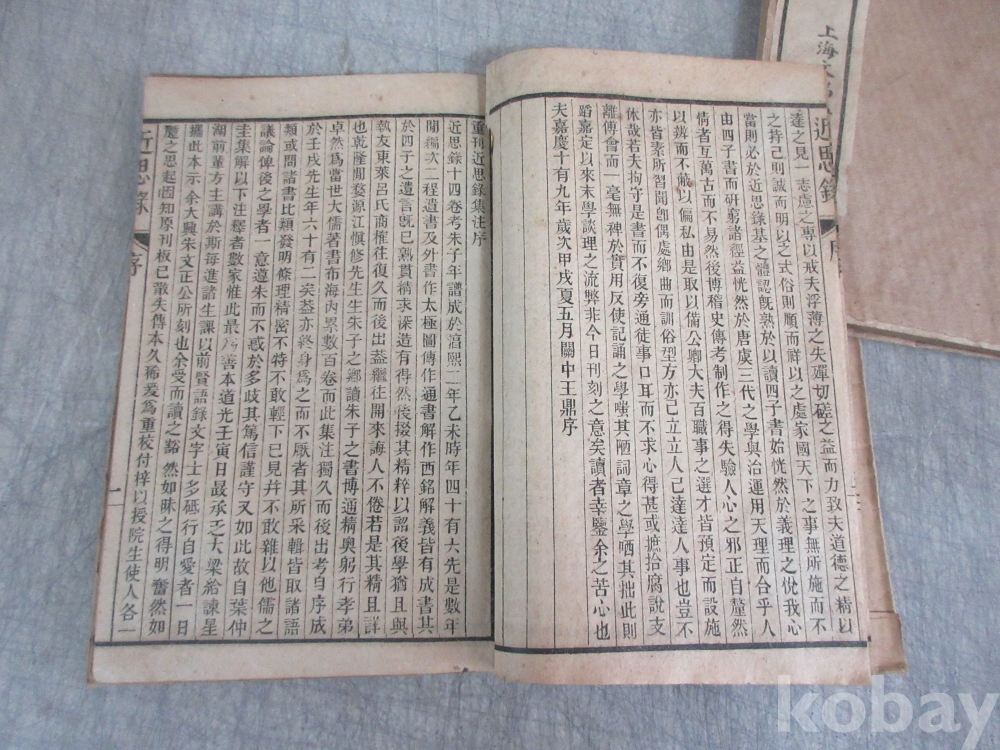 達之見一志慮之專以戒夫浮薄之失殫切磋之益而力致夫道德之精以
之持己則誠而明以之式俗則順而祥以之處家國天下之事無所施而不
當則必於近思錄基之體認既熟於以讀四子書始恍然於義理之悅我心
由四子書而研窮諸經益恍然於唐虞三代之學與治運用天理而合乎人
情者亙萬古而不易然後博稽史傳考制作之得失驗人心之邪正自釐然
以辨而不蔽以偏私由是取以備公卿大夫百職事之選才皆預定而設施
亦皆素所習聞卽偶處鄉曲而訓俗型方亦己立立人己達達人事也豈不
休哉若夫拘守是書而不復旁通徒事口耳而不求心得甚或摭拾腐說支
離傅會而一毫無裨於實用反使記誦之學嗤其陋詞章之學哂其拙此則
蹈嘉定以來末學談理之流弊非今日刊刻之意矣讀者幸鑒余之苦心也
夫嘉慶十有九年歲次甲戌夏五月關中王鼎序
重刊近思錄集注序
近思錄十四卷考朱子年譜成於淳熙二年乙未時年四十有六先是數年
閒編次二程遺書及外書作太極圖傳作通書解作西銘解義皆有成書其
於四子之遺言既已熟貫精求深造有得然後掇其精粹以詔後學猶且與
執友東萊呂氏商榷往復久而後出蓋繼往開來誨人不倦若是其精且詳
也乾隆閒婺源江慎修先生生朱子之鄉讀朱子之書博通精奧躬行孝弟
卓然爲當世大儒著書布海內累數百卷而此集注獨久而後出考自序成
於壬戌先生年六十有二矣蓋亦終身爲之而不厭者其所采輯皆取諸語
類或問諸書比類發明條理精密不特不敢輕下已見幷不敢雜以他儒之
議論俾後之學者一意遵朱而不惑於多歧其篤信謹守又如此故自葉仲
圭集解以下注釋者數家惟此最爲善本道光壬寅日最承乏大梁給諫星
湖前輩方主講於斯每進諸生課以前賢語錄文字士多砥行自愛者一日
攜此本示余大興朱文正公所刻也余受而讀之豁然如昧之得明奮然如
蹷之思起固知原刊板已散失傳本久稀爰爲重校付梓以授院生使人各一
近思錄
序
一
上海
近思錄
序
kobay